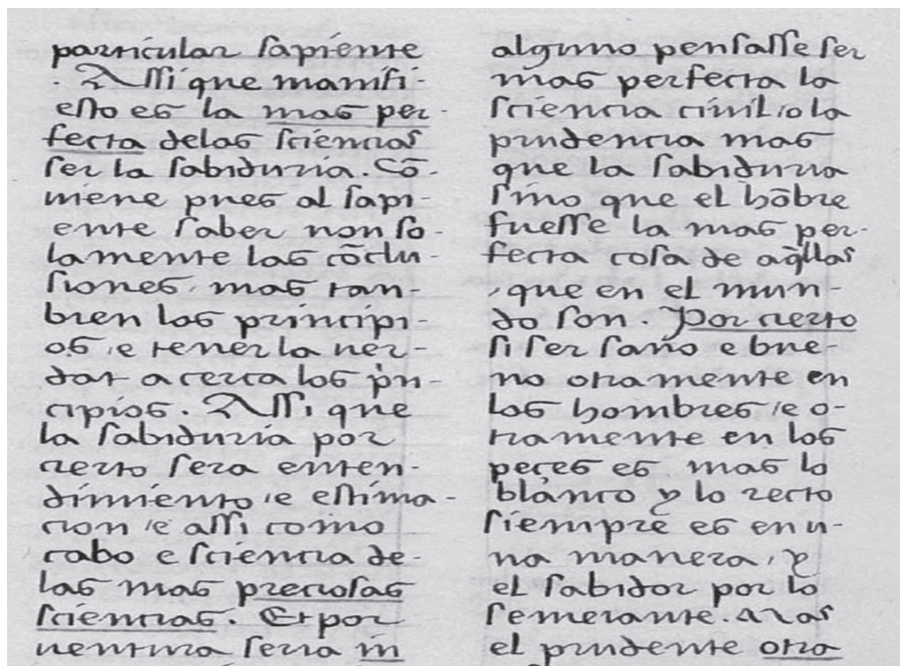 particular sapiente
. Assi que manifi-
esto es la mas per-
fecta delas sciencias
ser la sabiduria. Cō-
uiene pues al sapi-
ente saber non so-
lamente las cōclu-
siones, mas tan-
bien los principi-
os, e tener la uer-
dat acerca los p̀n-
cipios. Assi que
la sabiduria por
cierto sera enten-
dimiento, e estima-
cion, e assi como
cabo e sciencia de-
las mas preciosas
sciencias. Et por
uentura seria in
alguno pensasse ser
mas perfecta la
sciencia ciuil, o la
prudencia mas
que la sabiduria
sino que el hōbre
fuesse la mas per-
fecta cosa de aq̃llas
, que en el mun-
do son. Por cierto
si ser sano e bue-
no otramente en
los hombres, e o-
tramente en los
peçes es mas lo
blanco y lo recto
siempre es en u-
na manera, y
el sabidor por lo
semeiante. Mas
el prudente otra